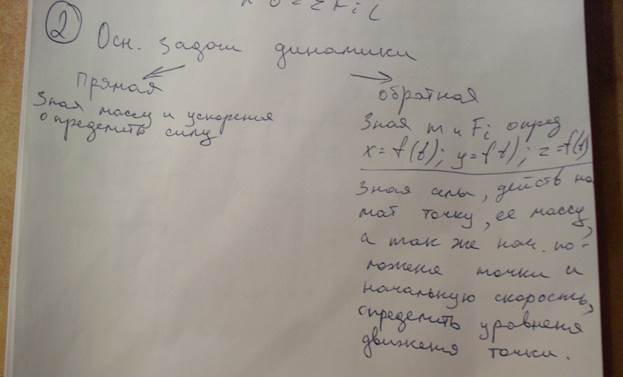 ② Осн. задачи динамики
Прямая
Зная массу и ускорения
определить силу
обратная
Зная m и Fi опред
x = f(t); y = f(t); z = f(t)
Зная силы, действ на
мат точку, ее массу,
а так же нач. по-
ложения точки и
начальную скорость,
определить уравнения
движения точки.